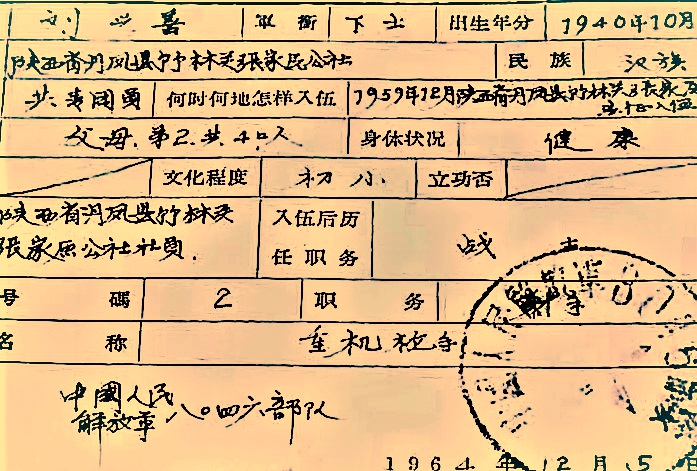 刘 善 军衔 下士 出生年分 1940年10月
陕西省丹凤县竹林关張家民公社 民族 汉族
共青团員 何时何地怎样入伍 1959年12月陕西省丹凤县竹林关張家
入伍
父母.弟2.共4口人 身体状况 健康
文化程度 初小 立功否
陕西省丹凤县竹林关 入伍后历
張家原公社社員. 任职务 战士
号碼 2 职务
名称 重机枪手
中國人民
解放軍 八〇四六部队
1964年12月5日